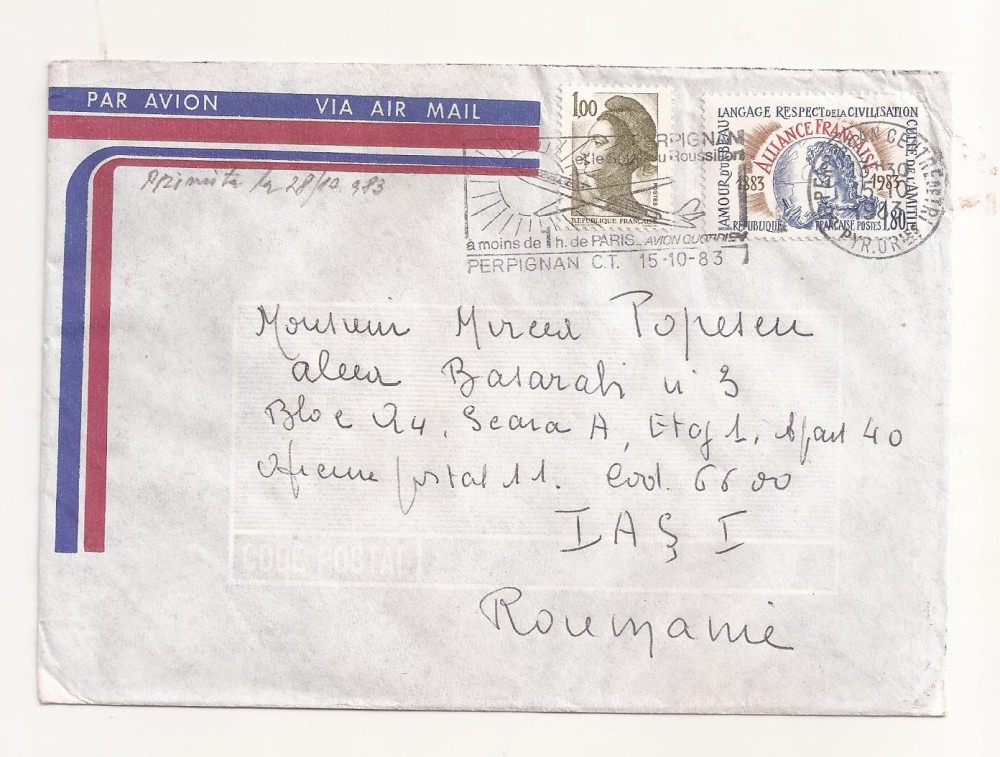 PAR AVION VIA AIR MAIL
primita la 28/10 983
1,00
POSTES
REPUBLIQUE FRANÇAISE
AMOUR DU BEAU LANGAGE RESPECT DE LA CIVILISATION CULTE DE L'AMITIÉ
ALLIANCE FRANÇAISE
1883 1983
REPUBLIQUE FRANÇAISE POSTES 1,80
PERPIGNAN
et le Soleil du Roussillon
à moins de 1 h. de PARIS... AVION QUOTIDIEN
PERPIGNAN C.T. 15-10-83
PERPIGNAN CENTRE DE TRI
15-10
1983
PYR.ORles
Monsieur Mircea Popescu
aleea Basarabi n° 3
Bloc A4, Scara A, Etaj 1, Apart 40
Oficiul postal 11. Cod. 6600
IAŞI
Roumanie
CODE POSTAL